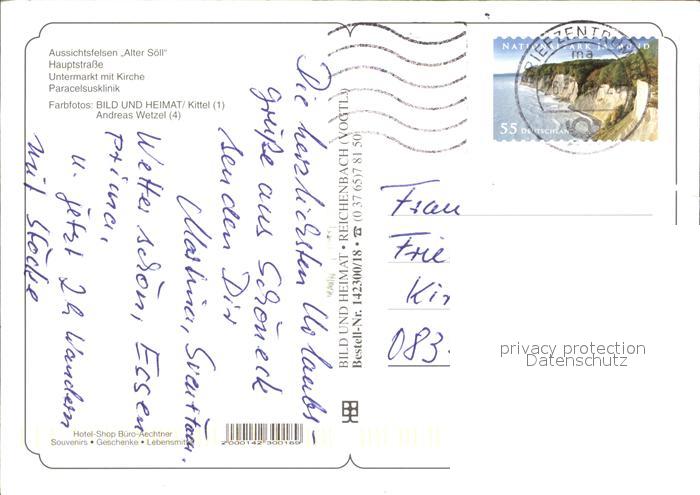 Aussichtsfelsen „Alter Söll"
Hauptstraße
Untermarkt mit Kirche
Paracelsusklinik
Farbfotos: BILD UND HEIMAT/ Kittel (1)
Andreas Wetzel (4)
Die herzlichsten Urlaubs-
grüße aus Schöneck
senden Dir
Martina,
Wetter schön, Essen
prima,
u. jetzt 2h Wandern
mit Stöcke
Hotel-Shop Büro-Aechtner
Souvenirs • Geschenke • Lebensmittel
2000142300189
BILD UND HEIMAT • REICHENBACH (VOGTL)
Bestell-Nr. 142300/18 • ☎ (0 37 65) 7 81 50
BRIEFZENTRUM
NATIONALPARK JASMUND
55 DEUTSCHLAND
Frau
Frie
Kir
083
privacy protection
Datenschutz